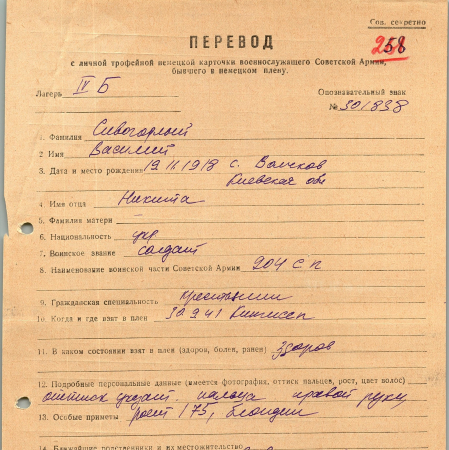 Сов. секретно
258
ПЕРЕВОД
с личной трофейной немецкой карточки военнослужащего Советской Армии,
бывшего в немецком плену.
Лагерь IV Б
Опознавательный знак
№ 301838
1. Фамилия
2. Имя Василий
3. Дата и место рождения 19 11.1918 с.
Киевская обл
4. Имя отца Никита
5. Фамилия матери
6. Национальность укр
7. Воинское звание солдат
8. Наименование воинской части Советской Армии 204 с п
9. Гражданская специальность крестьянин
10. Когда и где взят в плен 30 9 41 Кингисеп
11. В каком состоянии взят в плен (здоров, болен, ранен) здоров
12. Подробные персональные данные (имеется фотография, оттиск пальцев, рост, цвет волос)
указат. пальца правой руки,
13. Особые приметы рост 175, блондин
14. Ближайшие родственники и их местожительство